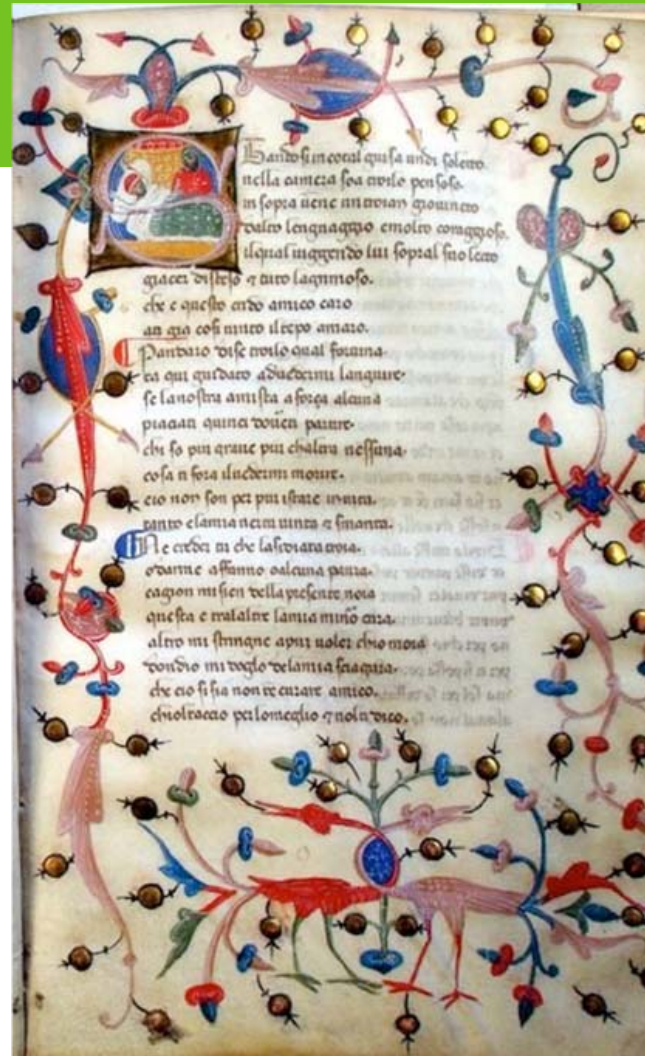 Standosi in cotal guisa un di soletto
nella camera soa troilo pensoso.
in sopra uene un troian giouineto
dalto lengnaggio e molto coraggioso.
il qual ueggendo lui sopral suo lecto
giacer disteso et tuto lagrimoso.
che e questo crido amico caro
an gia cosi uinto il tempo amaro.
Pandaro dise troilo qual fortuna
ta qui guidato aduedermi languire.
se la nostra amista a força alcuna
piaciati quinci douerti partire.
chi so piu graue piu chaltra nessuna
cosa ti fora iluedermi morire.
cio non son per piu istare in uita.
tanto e la mia uinta et smarita.
Ne creder tu che lasediata troia.
o darme affanno o alcuna paura.
cagion mi sien della presente noia
questa e tralaltre la mia minor cura.
altro mi stringne a pur uoler chio moia
dondio mi doglo dela mia sciagura.
che cio si sia non te curare amico.
chiol taccio per lo meglio et nol ti dico.